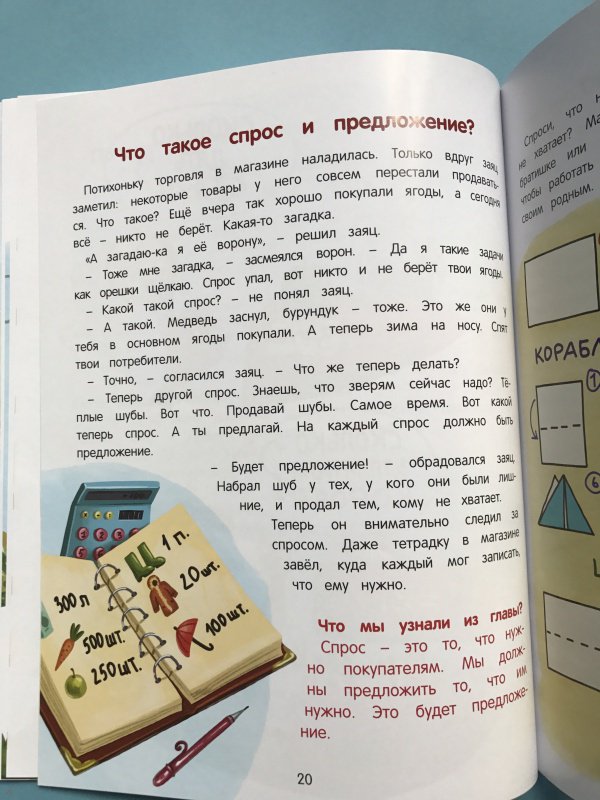 Что такое спрос и предложение?
Потихоньку торговля в магазине наладилась. Только вдруг заяц
заметил: некоторые товары у него совсем перестали продавать-
ся. Что такое? Ещё вчера так хорошо покупали ягоды, а сегодня
всё – никто не берёт. Какая-то загадка.
«А загадаю-ка я её ворону», – решил заяц.
– Тоже мне загадка, – засмеялся ворон. – Да я такие задачи
как орешки щёлкаю. Спрос упал, вот никто и не берёт твои ягоды.
– Какой такой спрос? – не понял заяц.
– А такой. Медведь заснул, бурундук – тоже. Это же они у
тебя в основном ягоды покупали. А теперь зима на носу. Спят
твои потребители.
– Точно, – согласился заяц. – Что же теперь делать?
– Теперь другой спрос. Знаешь, что зверям сейчас надо? Тё-
плые шубы. Вот что. Продавай шубы. Самое время. Вот какой
теперь спрос. А ты предлагай. На каждый спрос должно быть
предложение.
– Будет предложение! – обрадовался заяц.
Набрал шуб у тех, у кого они были лиш-
ние, и продал тем, кому не хватает.
Теперь он внимательно следил за
спросом. Даже тетрадку в магазине
завёл, куда каждый мог записать,
что ему нужно.
300 л
500 шт.
250 шт.
1 п.
20 шт.
100 шт.
Что мы узнали из главы?
Спрос – это то, что нуж-
но покупателям. Мы долж-
ны предложить то, что им
нужно. Это будет предложе-
ние.
20
Спроси, что н
не хватает? Ма
братишке или
чтобы работать
своим родным.
КОРАБЛ
1
6